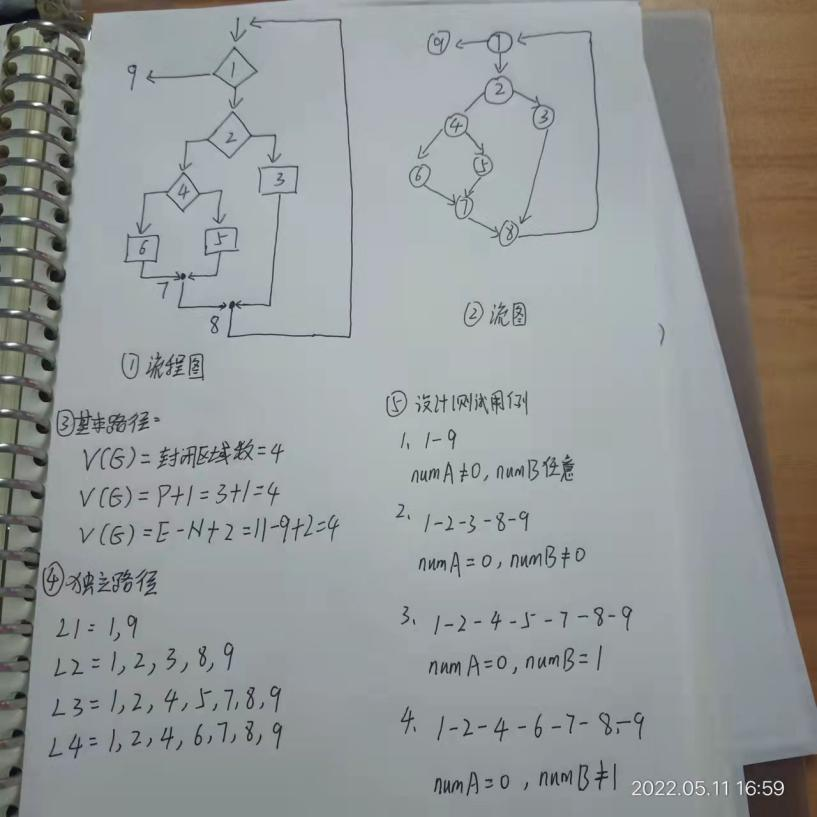 1
9
2
4
3
6
5
7
8
①流程图
⑨
①
②
④
③
⑥
⑤
⑦
⑧
②流图
③基本路径:
V(G)=封闭区域数=4
V(G)=P+1=3+1=4
V(G)=E-N+2=11-9+2=4
④独立路径
L1=1,9
L2=1,2,3,8,9
L3=1,2,4,5,7,8,9
L4=1,2,4,6,7,8,9
⑤设计测试用例
1、1-9
numA≠0,numB任意
2、1-2-3-8-9
numA=0,numB≠0
3、1-2-4-5-7-8-9
numA=0,numB=1
4、1-2-4-6-7-8-9
numA=0,numB≠1
2022.05.11 16:59